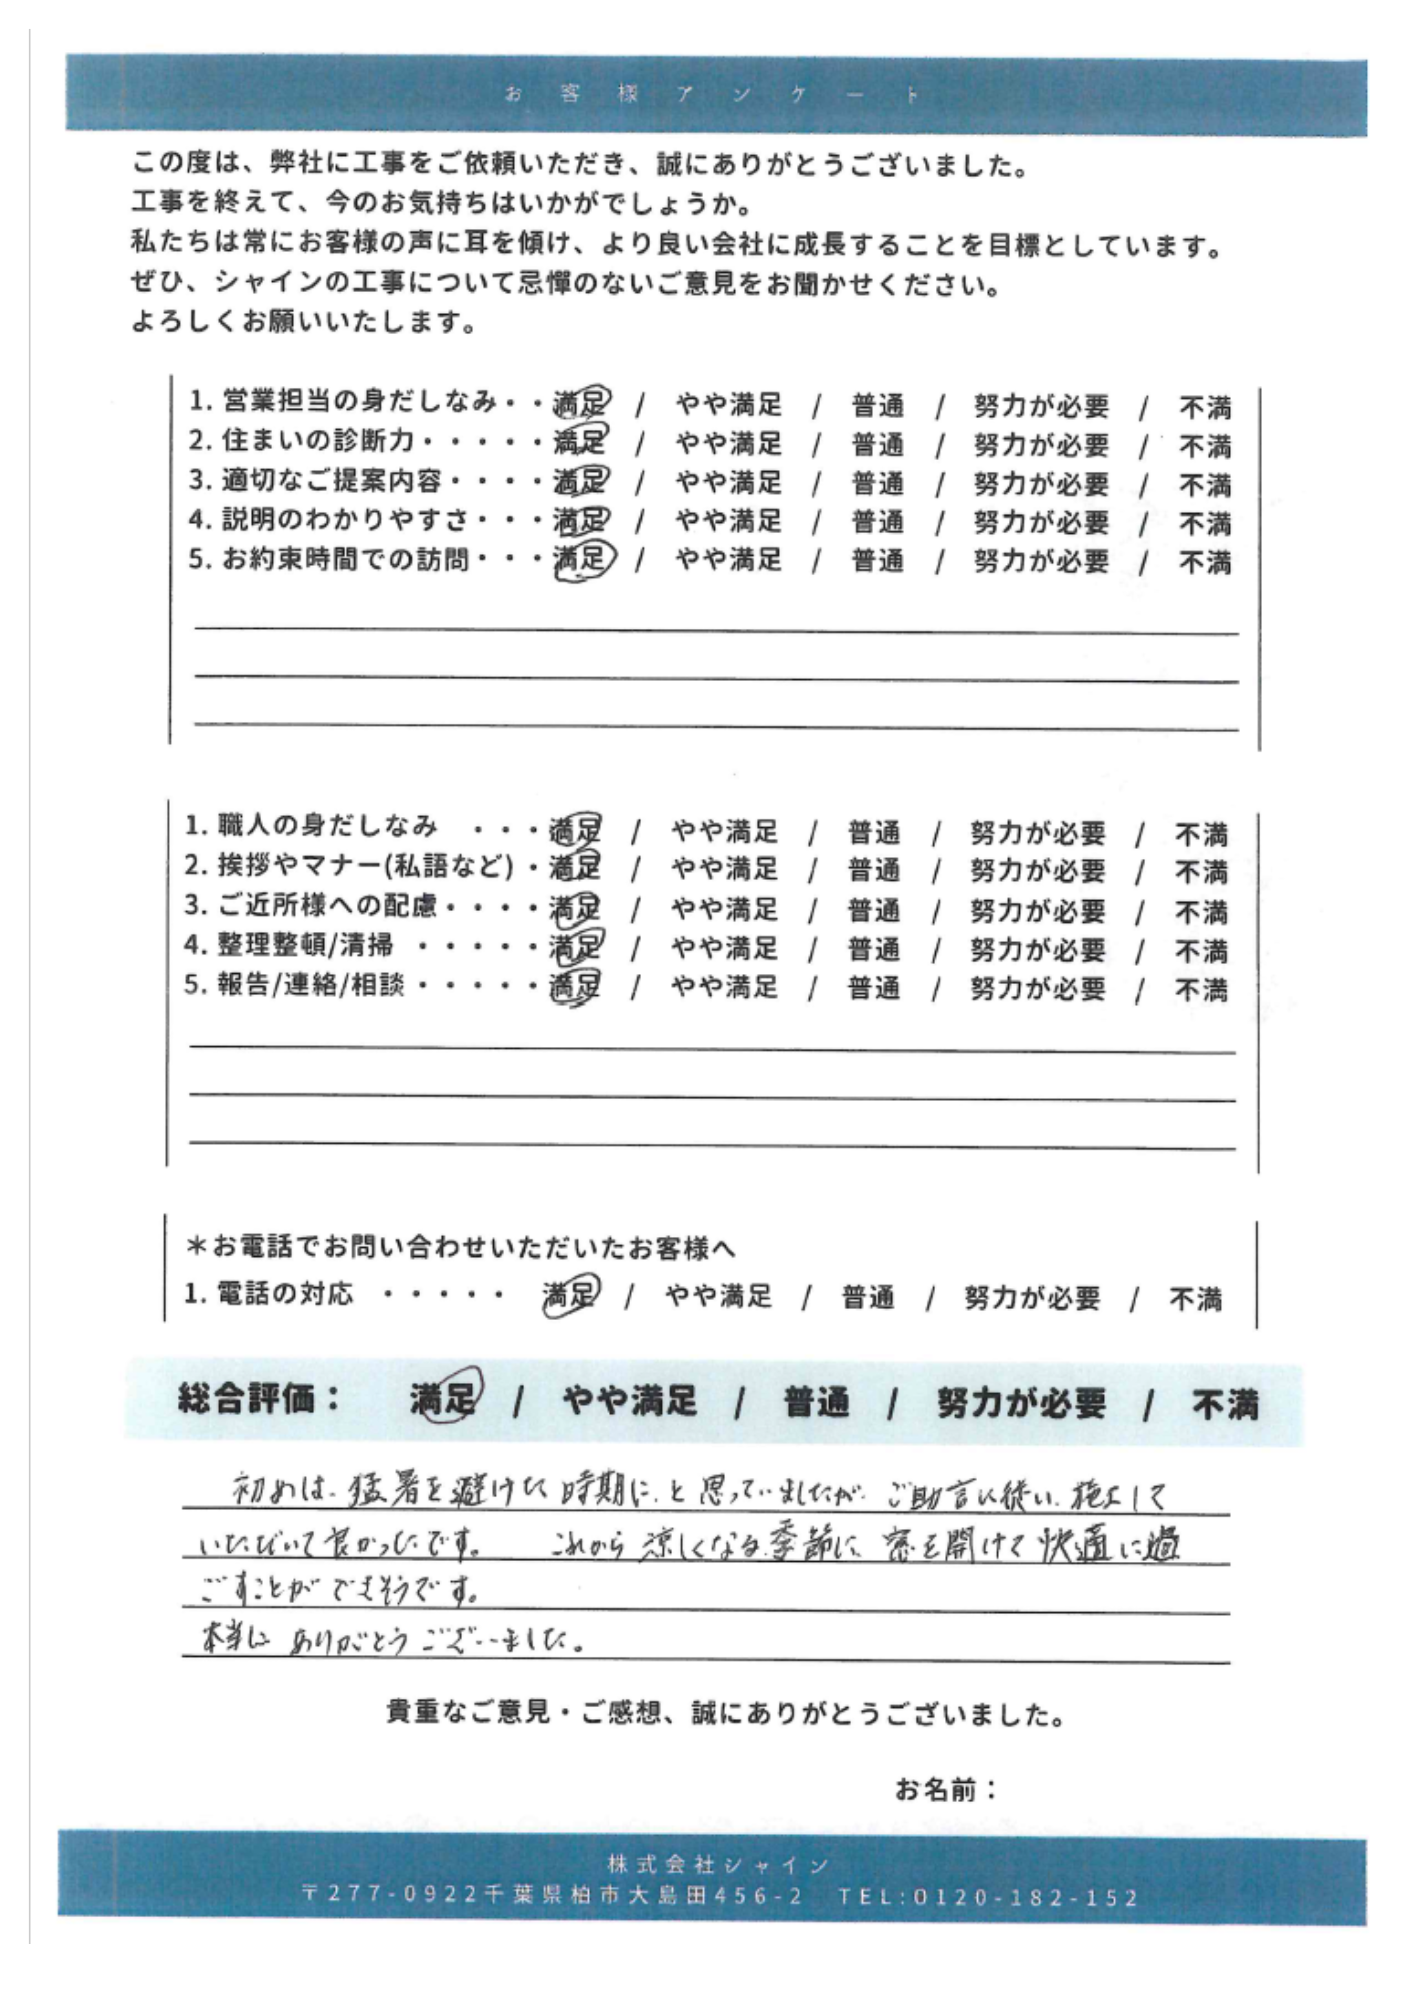 お客様アンケート
この度は、弊社に工事をご依頼いただき、誠にありがとうございました。
工事を終えて、今のお気持ちはいかがでしょうか。
私たちは常にお客様の声に耳を傾け、より良い会社に成長することを目標としています。
ぜひ、シャインの工事について忌憚のないご意見をお聞かせください。
よろしくお願いいたします。
1. 営業担当の身だしなみ・・満足 / やや満足 / 普通 / 努力が必要 / 不満
2. 住まいの診断力・・・・・満足 / やや満足 / 普通 / 努力が必要 / 不満
3. 適切なご提案内容・・・・満足 / やや満足 / 普通 / 努力が必要 / 不満
4. 説明のわかりやすさ・・・満足 / やや満足 / 普通 / 努力が必要 / 不満
5. お約束時間での訪問・・・満足 / やや満足 / 普通 / 努力が必要 / 不満
1. 職人の身だしなみ ・・・満足 / やや満足 / 普通 / 努力が必要 / 不満
2. 挨拶やマナー(私語など)・満足 / やや満足 / 普通 / 努力が必要 / 不満
3. ご近所様への配慮・・・・満足 / やや満足 / 普通 / 努力が必要 / 不満
4. 整理整頓/清掃 ・・・・・満足 / やや満足 / 普通 / 努力が必要 / 不満
5. 報告/連絡/相談・・・・・満足 / やや満足 / 普通 / 努力が必要 / 不満
＊お電話でお問い合わせいただいたお客様へ
1. 電話の対応 ・・・・・ 満足 / やや満足 / 普通 / 努力が必要 / 不満
総合評価： 満足 / やや満足 / 普通 / 努力が必要 / 不満
初めは、猛暑を避けた時期に、と思っていましたが、ご助言に従い、施工して
いただいて良かったです。 これから涼しくなる季節に窓を開けて快適に過
ごすことができそうです。
本当に ありがとうございました。
貴重なご意見・ご感想、誠にありがとうございました。
お名前：
株式会社シャイン
〒277-0922千葉県柏市大島田456-2 TEL:0120-182-152